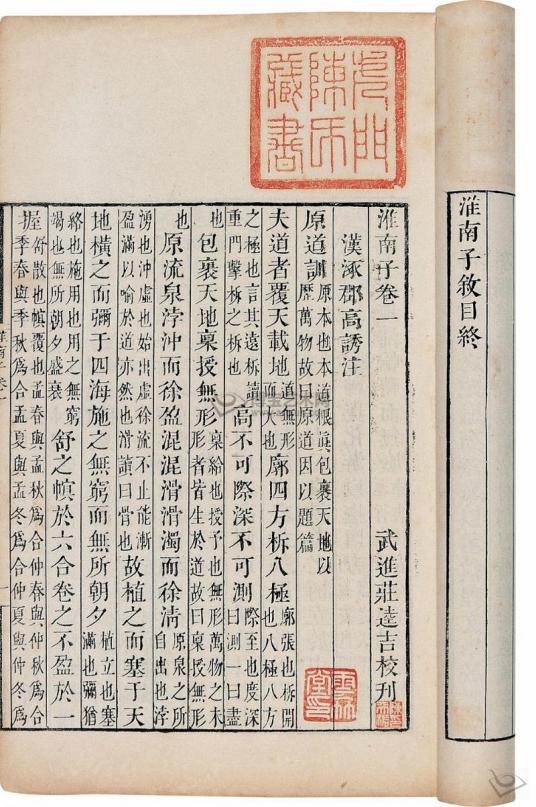 淮南子敘目終
淮南子卷一 武進莊逵吉校刊
漢涿郡高誘注
原道訓 原本也本道根眞包裹天地以歷萬物故曰原道因以題篇
夫道者覆天載地 道無形而大也 廓四方柝八極 廓張也柝開也八極八方
之極也言其遠柝讀重門擊柝之柝也 高不可際深不可測 際至也度深曰測一曰盡
也 包裹天地稟授無形 稟給也授予也無形萬物之未形者皆生於道故曰稟授無形
也 原流泉浡沖而徐盈混混滑滑濁而徐清 原泉之所自出也浡
湧也沖虛也始出虛徐流不止能漸盈滿以喻於道亦然也滑讀曰骨也 故植之而塞于天
地橫之而彌于四海施之無窮而無所朝夕 植立也塞滿也彌猶
絡也施用也用之無窮竭也無所朝夕盛衰 舒之幎於六合卷之不盈於一
握 舒散也幎覆也孟春與孟秋爲合仲春與仲秋爲合季春與季秋爲合孟夏與孟冬爲合仲夏與仲冬爲合
陳氏藏書